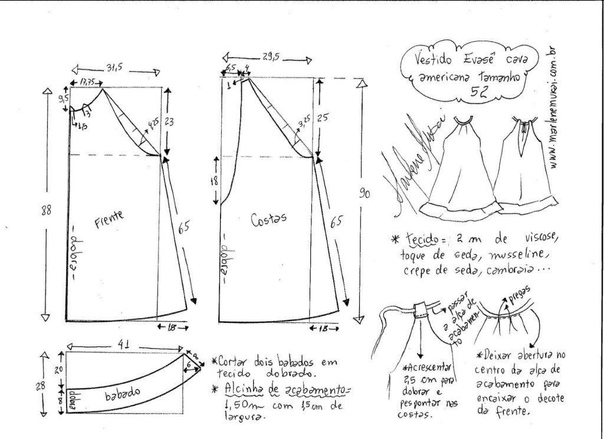 31,5
17,75
9,5
3
1,5
4,25
23
88
Frente
dobra
65
18
29,5
6,5
4
1
3,25
25
18
90
Costas
dobra
65
18
Vestido Evasê cava
americana tamanho
52
www.marlenemukai.com.br
Marlene Mukai
* tecido = 2 m de viscose,
toque de seda, musseline,
crepe de seda, cambraia...
passar
a alça de
acabamen
to
pregas
* Acrescentar
2,5 cm para
dobrar e
pespontar nas
costas.
* Deixar abertura no
centro da alça de
acabamento para
encaixar o decote
da frente.
41
28
20
8
8
6
dobra
babado
* Cortar dois babados em
tecido dobrado.
* Alcinha de acabamento =
1,50m com 1,5cm de
largura.